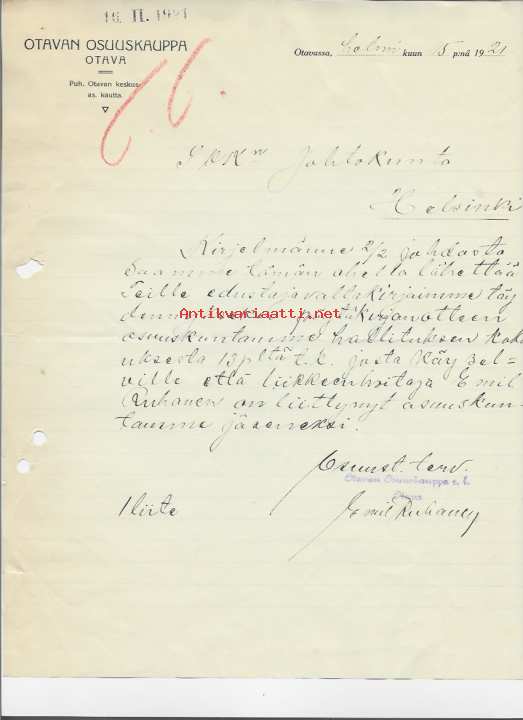 16. II. 1921
OTAVAN OSUUSKAUPPA
OTAVA
Puh. Otavan keskus-
as. kautta.
Otavassa, helmi kuun 15 p:nä 1921
Johtokunta
Helsinki
Kirjelmänne 2/2 johdosta
saamme tämän ohella lähettää
Teille edustajavaltakirjaimme täy
pöytäkirjanotteen
osuuskuntamme hallituksen koko
uksesta 13 p:ltä t.k. josta käy sel-
ville että liikkeenhoitaja Emil
Ruhanen on liittynyt osuuskun-
tamme jäseneksi.
Osuust. terv.
Otavan Osuuskauppa r. l.
Otava
1 liite
Emil Ruhanen
Antikvariaatti.net